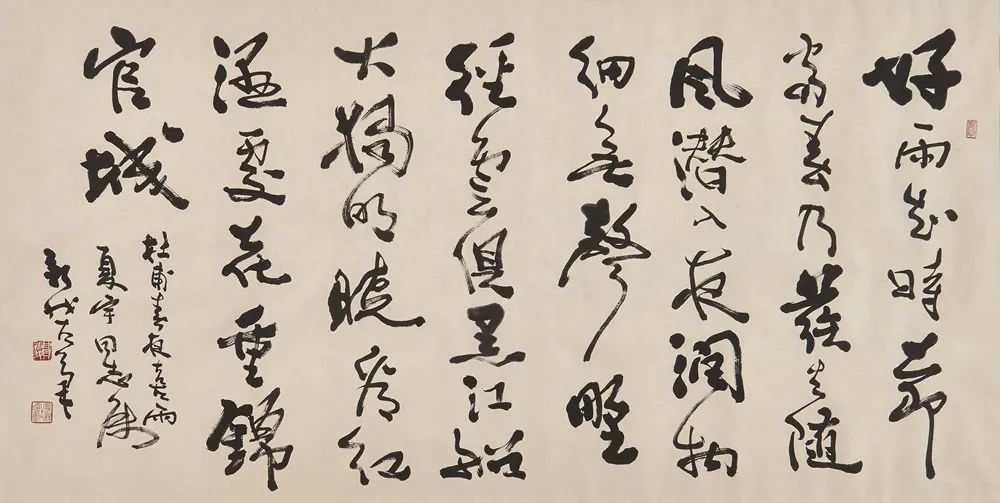 好雨知時節
當春乃發生隨
風潜入夜潤物
細無聲野
徑雲俱黑江船
火獨明曉看紅
濕處花重錦
官城
杜甫春夜喜雨
夏宇同志属